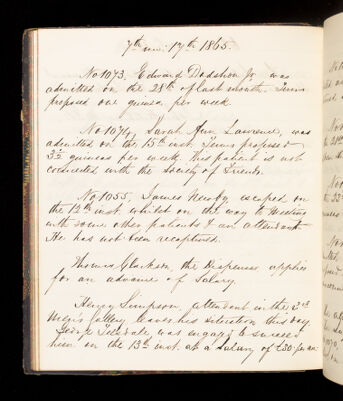 7th mo: 17th 1865.
No 1073, Edward Dodshon Jr was
admitted on the 28th of last month. Terms
proposed one guinea per week.
No 1074, Sarah Ann Lawrence, was
admitted on the 15th inst. Terms proposed
3½ guineas per week, this patient is not
connected with the Society of Friends.
No 1055, James Newby escaped on
the 12th inst. whilst on the way to Meeting
with some other patients & an attendant.
He has not been recaptured.
Thomas Clarkson, the Dispenser applies
for an advance of Salary.
Henry Simpson, attendant in the 3rd
Men's Gallery leaves his situation this day.
George Teasdale was engaged to succeed
him on the 13th inst. at a Salary of £30 per an: